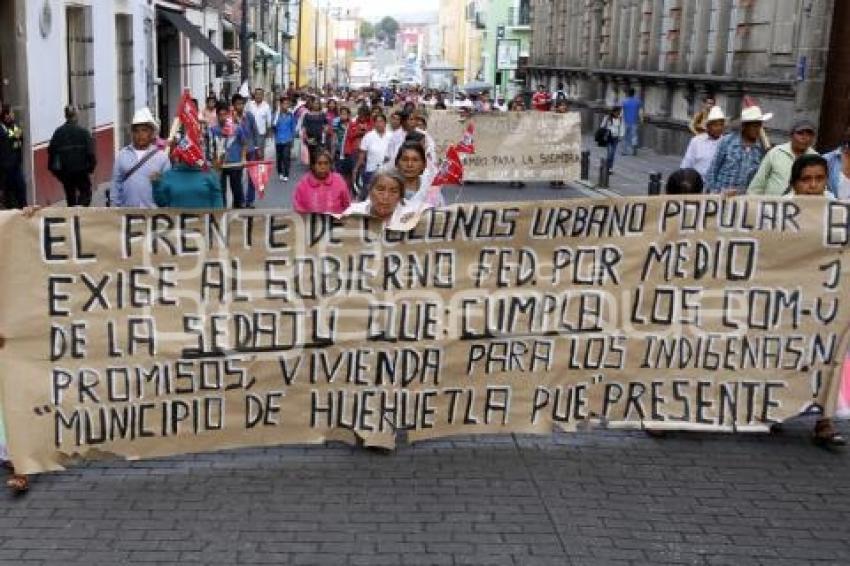 AMBO PARA LA SIEMBRA
DE HUE
EL FRENTE DE COLONOS URBANO POPULAR
EXIGE AL GOBIERNO FED. POR MEDIO
DE LA SEDATU QUE CUMPLA LOS COM-
PROMISOS, VIVIENDA PARA LOS INDIGENAS.
"MUNICIPIO DE HUEHUETLA PUE" PRESENTE